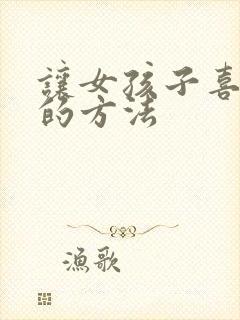 讓女孩子喜
的方法
漁歌